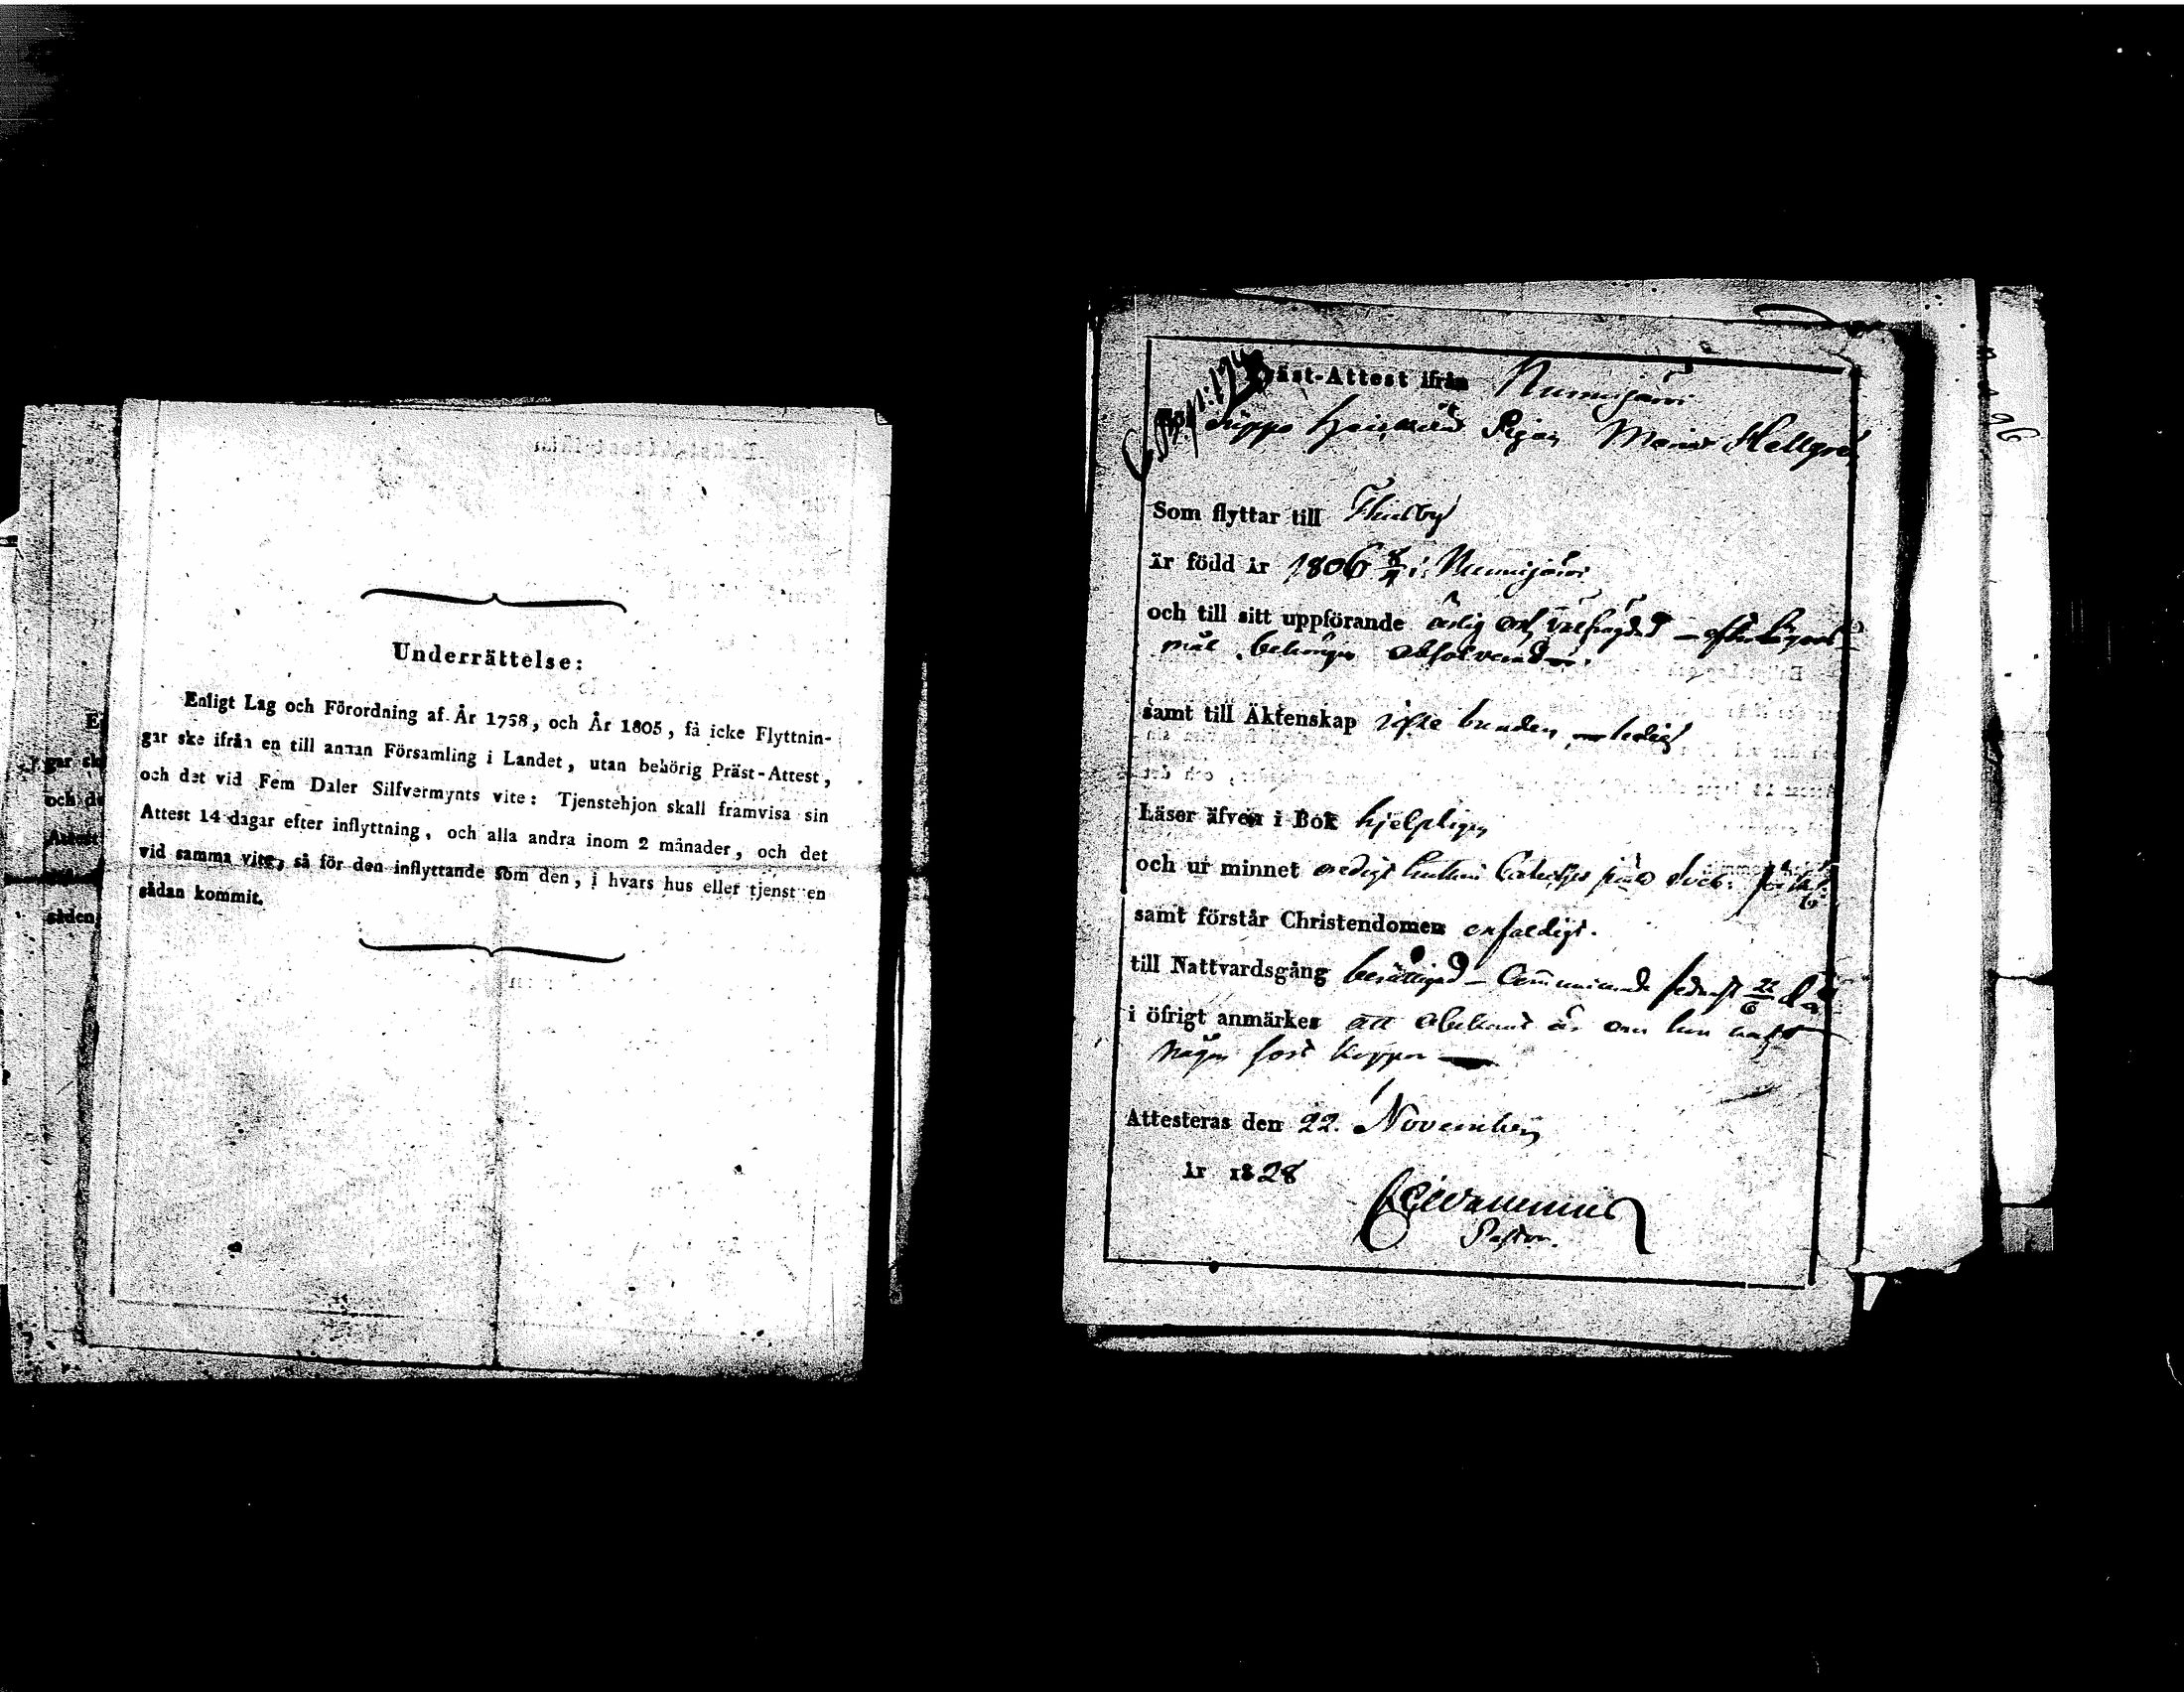 Underrättelse:
Enligt Lag och Förordning af År 1758, och År 1805, få icke Flyttnin-
gar ske ifrån en till annan Församling i Landet, utan behörig Präst-Attest,
och det vid Fem Daler Silfvermynts vite: Tjenstehjon skall framvisa sin
Attest 14 dagar efter inflyttning, och alla andra inom 2 månader, och det
vid samma vite, så för den inflyttande som den, i hvars hus eller tjenst en
sådan kommit.
96
äst-Attest ifrån Nummijärvi
Pigan Maria Hellgren
Som flyttar till Thusby
är född år 1806 i Nummijärvi
och till sitt uppförande ärlig och välfrägdad —
samt till Äktenskap icke bunden — ledig
Läser äfven i Bok hjelpligen
och ur minnet
samt förstår Christendomen enfaldigt.
till Nattvardsgång berättigad — Communicerade sednast 22/6
i öfrigt anmärkes att obekant är om hon haft
någon sort koppor —
Attesteras den 22. November
år 1828
Pastor.